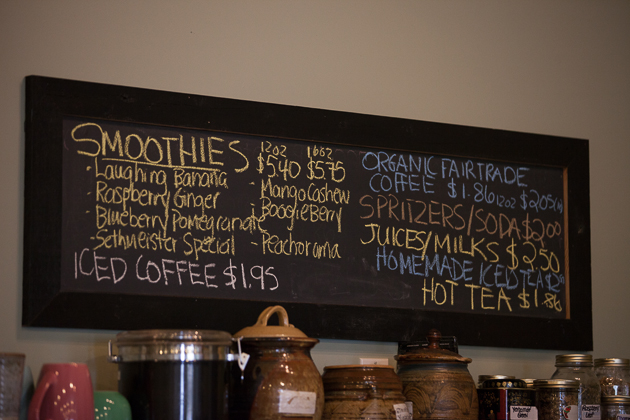 SMOOTHIES 12oz 16oz
$5.40 $5.75
· Laughing Banana
· Raspberry Ginger
· Blueberry Pomegranate
· Sethmeister Special
· Mango Cashew
· BoogieBerry
· Peacharama
ICED COFFEE $1.95
ORGANIC FAIRTRADE
COFFEE $1.86 12oz $2.05
SPRITZERS/SODA $2.00
JUICES/MILKS $2.50
HOMEMADE ICED TEA
HOT TEA $1.86